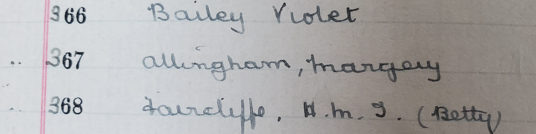 366 Bailey Violet
367 Allingham, Margery
368 Faircliffe, H.M.I. (Betty)